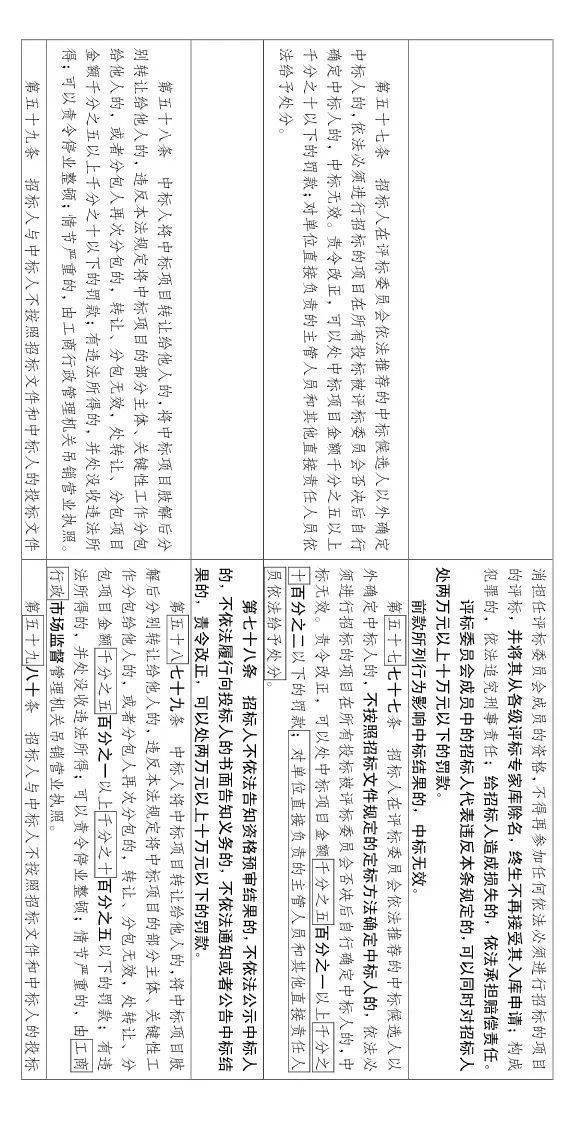 消担任评标委员会成员的资格，不得再参加任何依法必须进行招标的项目
的评标，并将其从各级评标专家库除名，终生不再接受其入库申请；构成
犯罪的，依法追究刑事责任；给招标人造成损失的，依法承担赔偿责任。
评标委员会成员中的招标人代表违反本条规定的，可以同时对招标人
处两万元以上十万元以下的罚款。
前款所列行为影响中标结果的，中标无效。
第五十七条 招标人在评标委员会依法推荐的中标候选人以外确定
中标人的，依法必须进行招标的项目在所有投标被评标委员会否决后自行
确定中标人的，中标无效。责令改正，可以处中标项目金额千分之五以上
千分之十以下的罚款；对单位直接负责的主管人员和其他直接责任人员依
法给予处分。
第五十七七十七条 招标人在评标委员会依法推荐的中标候选人以
外确定中标人的，不按照招标文件规定的定标方法确定中标人的，依法必
须进行招标的项目在所有投标被评标委员会否决后自行确定中标人的，中
标无效。责令改正，可以处中标项目金额千分之五百分之一以上千分之
十百分之二以下的罚款；对单位直接负责的主管人员和其他直接责任人
员依法给予处分。
第七十八条 招标人不依法告知资格预审结果的，不依法公示中标人
的，不依法履行向投标人的书面告知义务的，不依法通知或者公告中标结
果的，责令改正，可以处两万元以上十万元以下的罚款。
第五十八条 中标人将中标项目转让给他人的，将中标项目肢解后分
别转让给他人的，违反本法规定将中标项目的部分主体、关键性工作分包
给他人的，或者分包人再次分包的，转让、分包无效，处转让、分包项目
金额千分之五以上千分之十以下的罚款；有违法所得的，并处没收违法所
得；可以责令停业整顿；情节严重的，由工商行政管理机关吊销营业执照。
第五十八七十九条 中标人将中标项目转让给他人的，将中标项目肢
解后分别转让给他人的，违反本法规定将中标项目的部分主体、关键性工
作分包给他人的，或者分包人再次分包的，转让、分包无效，处转让、分
包项目金额千分之五百分之一以上千分之十百分之五以下的罚款；有违
法所得的，并处没收违法所得；可以责令停业整顿；情节严重的，由工商
行政市场监督管理机关吊销营业执照。
第五十九条 招标人与中标人不按照招标文件和中标人的投标文件
第五十九八十条 招标人与中标人不按照招标文件和中标人的投标